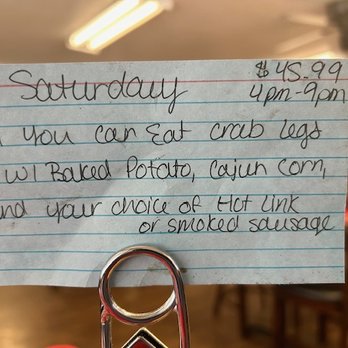 Saturday $45.99
4pm-9pm
you can Eat crab legs
w/ Baked Potato, Cajun Corn,
and your choice of Hot Link
or smoked sausage